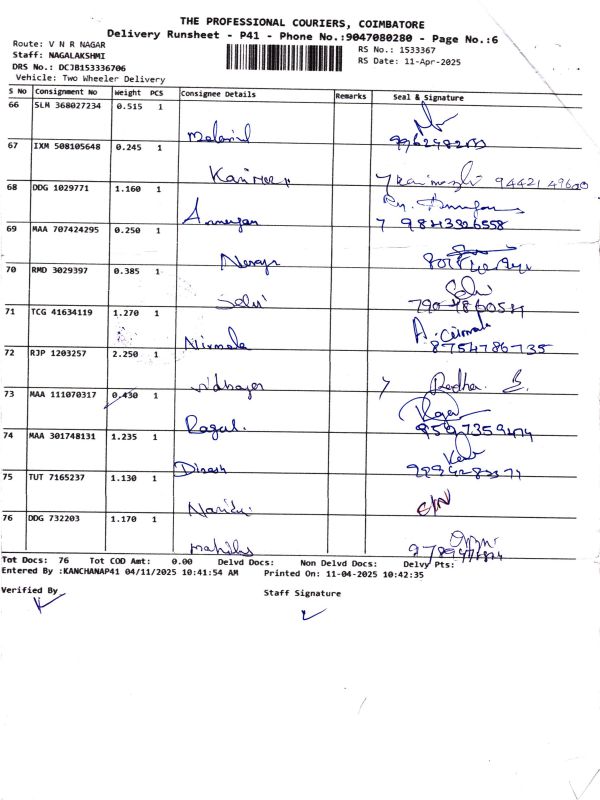 THE PROFESSIONAL COURIERS, COIMBATORE
Delivery Runsheet - P41 - Phone No.:9047080280 - Page No.:6
Route: V N R NAGAR
Staff: NAGALAKSHMI
DRS No.: DCJB153336706
Vehicle: Two Wheeler Delivery
RS No.: 1533367
RS Date: 11-Apr-2025
S No Consignment No Weight PCS Consignee Details Remarks Seal & Signature
66 SLM 368027234 0.515 1
67 IXM 508105648 0.245 1
68 DDG 1029771 1.160 1
Arumugan
9843326558
69 MAA 707424295 0.250 1
70 RMD 3029397 0.385 1
Selvi
71 TCG 41634119 1.270 1
Nirmala
8754786735
72 RJP 1203257 2.250 1
Radha. B.
73 MAA 111070317 0.430 1
Ragul.
9597359474
74 MAA 301748131 1.235 1
Dinesh
75 TUT 7165237 1.130 1
76 DDG 732203 1.170 1
Tot Docs: 76 Tot COD Amt: 0.00 Delvd Docs: Non Delvd Docs: Delvy Pts:
Entered By :KANCHANAP41 04/11/2025 10:41:54 AM Printed On: 11-04-2025 10:42:35
Verified By
Staff Signature